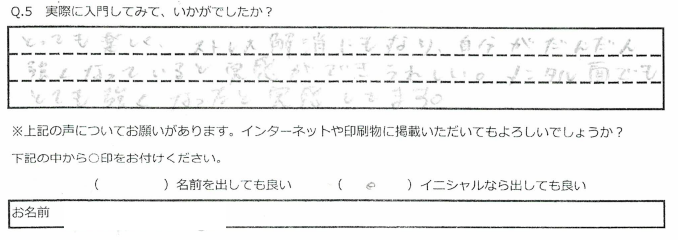 Q.5 実際に入門してみて、いかがでしたか？
とっても楽しく、ストレス解消にもなり、自分がだんだん
強くなっていると実感ができうれしい。メンタル面でも
とても強くなったと実感してます。
※上記の声についてお願いがあります。インターネットや印刷物に掲載いただいてもよろしいでしょうか？
下記の中から○印をお付けください。
（　　　　）名前を出しても良い　　（　○　）イニシャルなら出しても良い
お名前